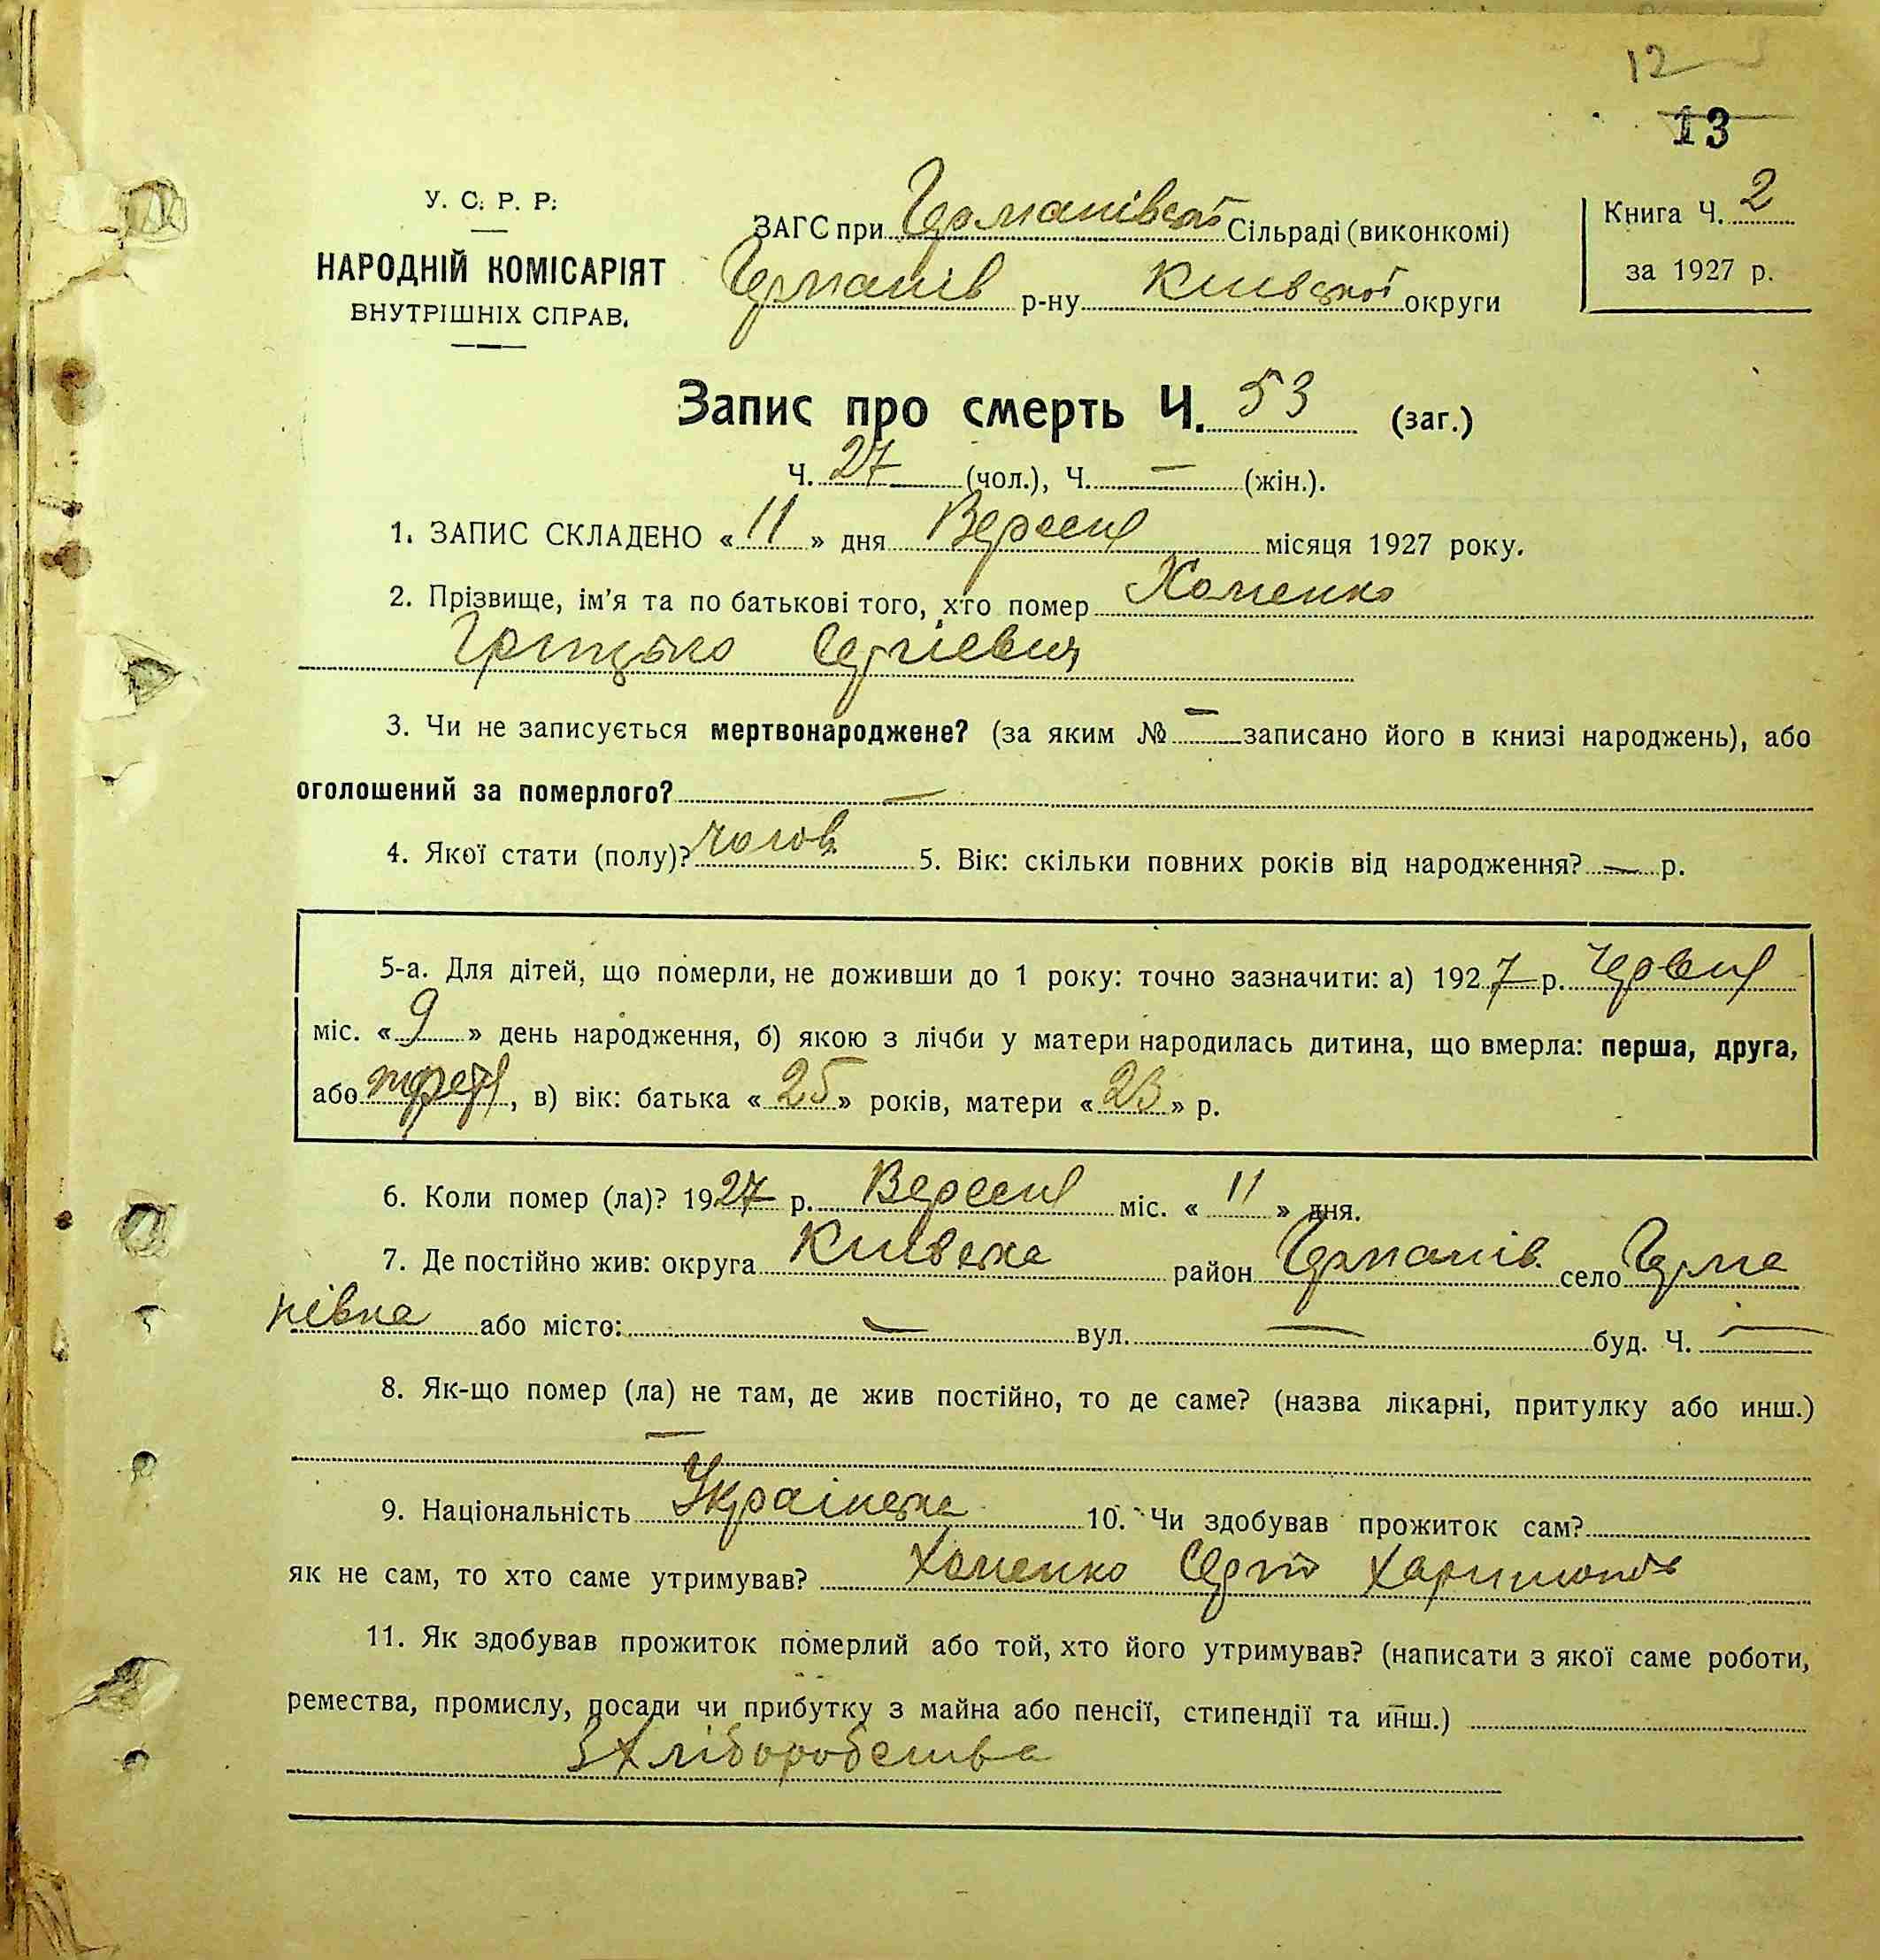 12
13
У. С. Р. Р.
НАРОДНІЙ КОМІСАРІЯТ
ВНУТРІШНІХ СПРАВ.
ЗАГС при Германівській Сільраді (виконкомі)
Германів р-ну Київської округи
Книга Ч. 2
за 1927 р.
Запис про смерть Ч. 53 (заг.)
Ч. 27 (чол.), Ч. — (жін.).
1. ЗАПИС СКЛАДЕНО « 11 » дня Вересня місяця 1927 року.
2. Прізвище, ім'я та по батькові того, хто помер Хоменко
Грицько Сергієвич
3. Чи не записується мертвонароджене? (за яким № — записано його в книзі народжень), або
оголошений за померлого? —
4. Якої стати (полу)? чолов. 5. Вік: скільки повних років від народження? — р.
5-а. Для дітей, що померли, не доживши до 1 року: точно зазначити: а) 1927 р. Червня
міс. « 9 » день народження, б) якою з лічби у матери народилась дитина, що вмерла: перша, друга,
або третя, в) вік: батька « 25 » років, матери « 23 » р.
6. Коли помер (ла)? 1927 р. Вересня міс. « 11 » дня.
7. Де постійно жив: округа Київська район Германів. село Герма
нівка або місто: — вул. — буд. Ч. —
8. Як-що помер (ла) не там, де жив постійно, то де саме? (назва лікарні, притулку або инш.)
—
9. Національність Українська 10. Чи здобував прожиток сам?
як не сам, то хто саме утримував? Хоменко Сергій
11. Як здобував прожиток померлий або той, хто його утримував? (написати з якої саме роботи,
ремества, промислу, посади чи прибутку з майна або пенсії, стипендії та инш.)
З хліборобства